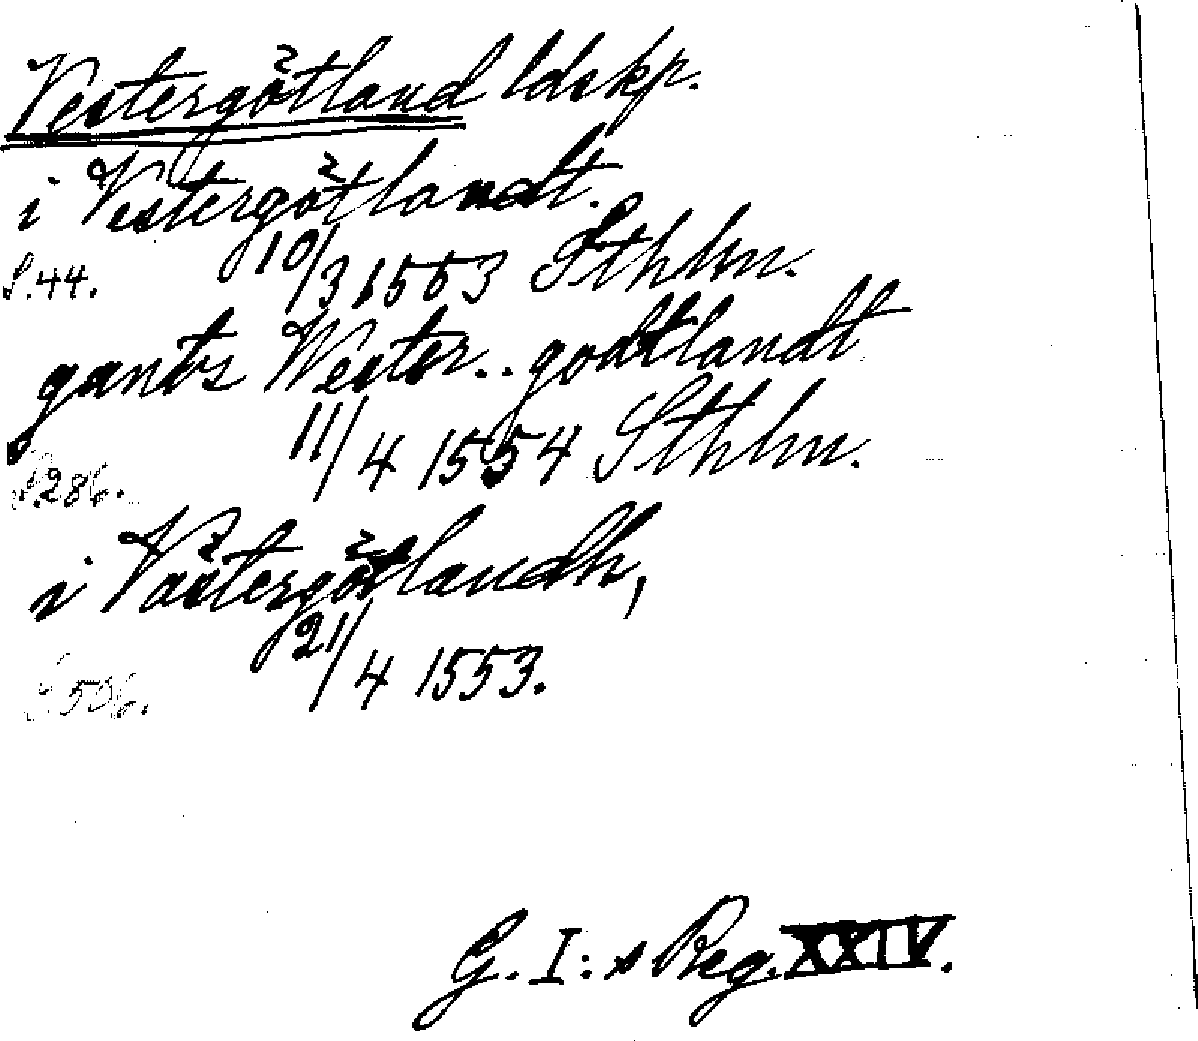 Vestergötland ldskp.
i Vestergötlandt.
S. 44. 10/3 1553 Sthlm.
gants Wester..godtlandt
S. 286. 11/4 1554 Sthlm.
i Västergötlandh,
S. 506. 21/4 1553.
G. I:s Reg. XXIV.